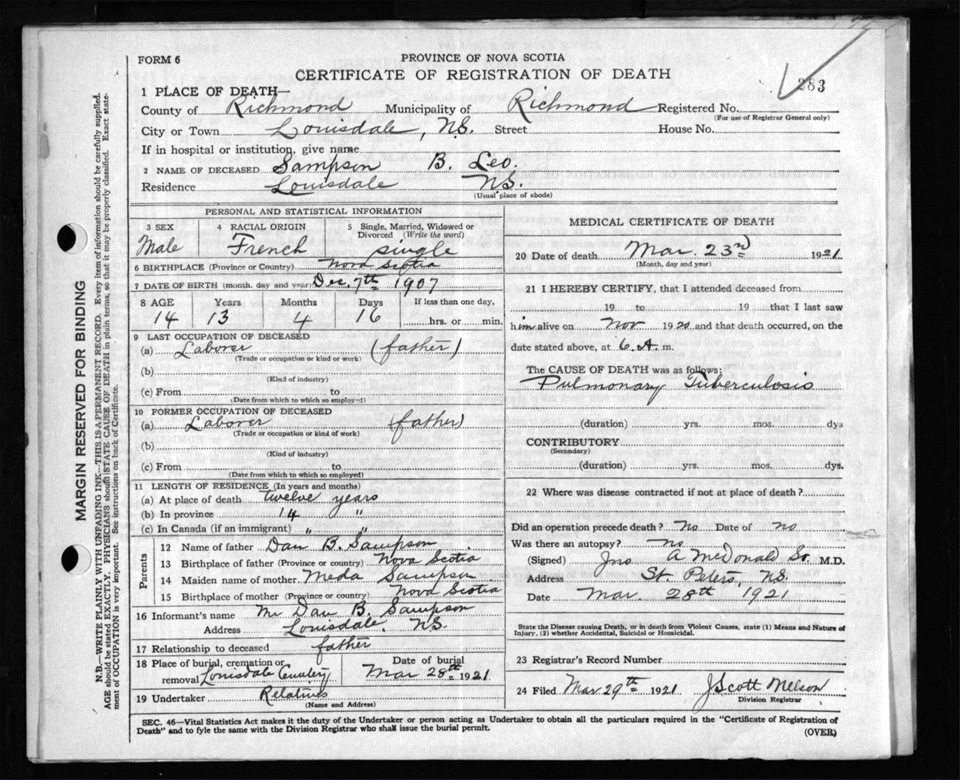 FORM 6
PROVINCE OF NOVA SCOTIA
CERTIFICATE OF REGISTRATION OF DEATH
283
1 PLACE OF DEATH—
County of Richmond Municipality of Richmond Registered No.
(For use of Registrar General only)
City or Town Louisdale, N.S. Street House No.
If in hospital or institution, give name
2 NAME OF DECEASED Sampson B. Leo.
Residence Louisdale N.S.
(Usual place of abode)
PERSONAL AND STATISTICAL INFORMATION
3 SEX 4 RACIAL ORIGIN 5 Single, Married, Widowed or Divorced (Write the word)
Male French single
6 BIRTHPLACE (Province or Country) Nova Scotia
7 DATE OF BIRTH (month, day and year) Dec. 7th 1907
8 AGE Years Months Days If less than one day,
14 13 4 16 hrs. or min.
9 LAST OCCUPATION OF DECEASED
(a) Laborer (father)
(Trade or occupation or kind or work)
(b)
(Kind of industry)
(c) From to
(Date from which to which so employed)
10 FORMER OCCUPATION OF DECEASED
(a) Laborer (father)
(Trade or occupation or kind of work)
(b)
(Kind of industry)
(c) From to
(Date from which to which so employed)
11 LENGTH OF RESIDENCE (In years and months)
(a) At place of death twelve years
(b) In province 14 "
(c) In Canada (if an immigrant) " "
Parents
12 Name of father Dan B. Sampson
13 Birthplace of father (Province or country) Nova Scotia
14 Maiden name of mother Meda Sampson
15 Birthplace of mother (Province or country) Nova Scotia
16 Informant's name Mr Dan B. Sampson
Address Louisdale, N.S.
17 Relationship to deceased father
18 Place of burial, cremation or removal Louisdale Cemetery Date of burial Mar 28th 1921
19 Undertaker Relatives
(Name and Address)
MEDICAL CERTIFICATE OF DEATH
20 Date of death Mar 23rd 1921
(Month, day and year)
21 I HEREBY CERTIFY, that I attended deceased from
19 to 19 that I last saw
him alive on Nov 1920 and that death occurred, on the
date stated above, at 6 A. m.
The CAUSE OF DEATH was as follows:
Pulmonary Tuberculosis
(duration) yrs. mos. dys
CONTRIBUTORY
(Secondary)
(duration) yrs. mos. dys.
22 Where was disease contracted if not at place of death?
Did an operation precede death? No Date of no
Was there an autopsy? No
(Signed) Jno A McDonald Sr. M.D.
Address St. Peters, N.S.
Date Mar. 28th 1921
State the Disease causing Death, or in death from Violent Causes, state (1) Means and Nature of
Injury, (2) whether Accidental, Suicidal or Homicidal.
23 Registrar's Record Number
24 Filed Mar. 29th 1921 J Scott Nelson
Division Registrar
SEC. 46—Vital Statistics Act makes it the duty of the Undertaker or person acting as Undertaker to obtain all the particulars required in the "Certificate of Registration of
Death" and to fyle the same with the Division Registrar who shall issue the burial permit.
(OVER)
MARGIN RESERVED FOR BINDING
N.B.—WRITE PLAINLY WITH UNFADING INK—THIS IS A PERMANENT RECORD. Every item of information should be carefully supplied.
AGE should be stated EXACTLY. PHYSICIANS should STATE CAUSE OF DEATH in plain terms, so that it may be properly classified. Exact state-
ment of OCCUPATION is very important. See instructions on back of Certificate.